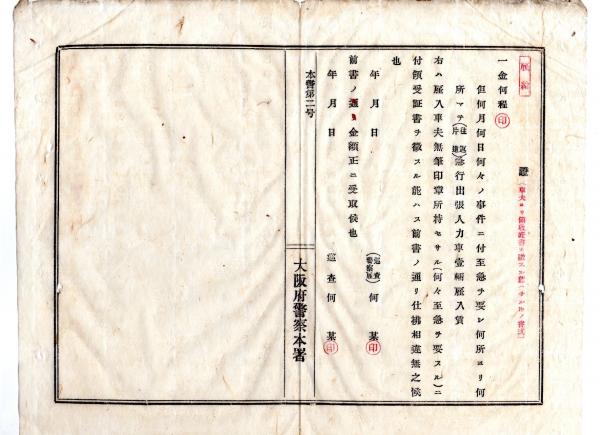 證
(車夫ヨリ領收證書ヲ徴スル能ハサルトキノ書式)
一金何程 印
但何月何日何々ノ事件ニ付至急ヲ要シ何所ヨリ何
所マテ(往返 片道)急行出張人力車壹輛雇入賃
右ハ雇入車夫無筆印章所持セサル(何々至急ヲ要スル)ニ
付領受証書ヲ徴スル能ハス前書ノ通リ仕拂相違無之候
也
年 月 日 (巡査 警察雇) 何 某 印
前書ノ通リ金額正ニ受取候也
年 月 日 巡査 何 某 印
本書第二号
大阪府警察本署